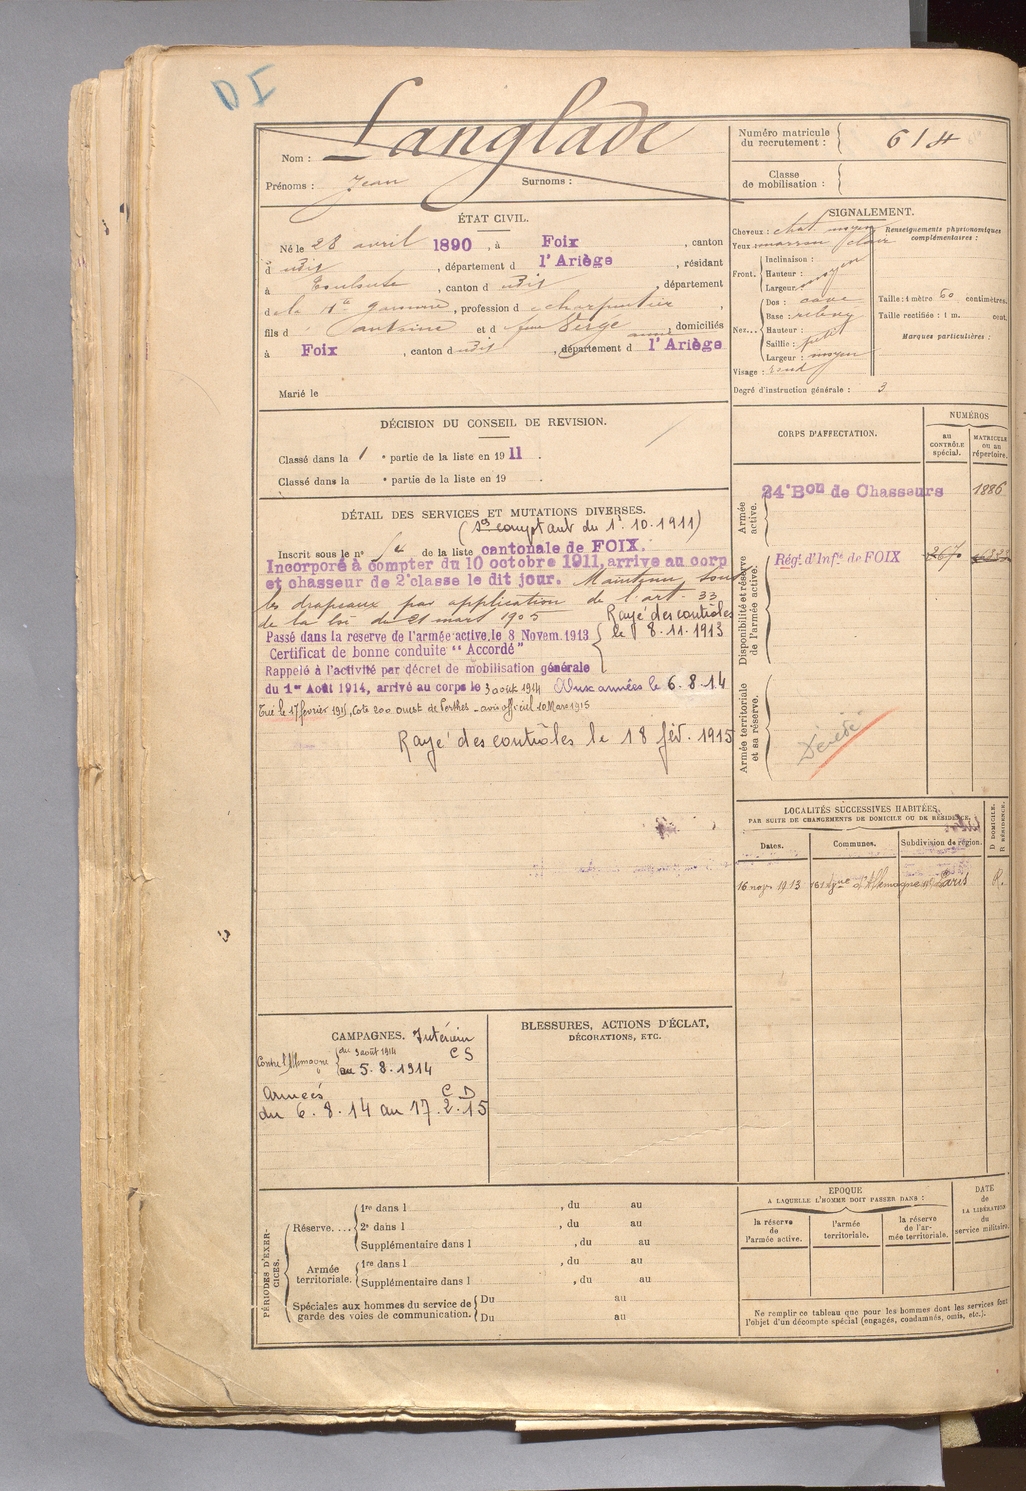 D I
Nom : Langlade
Prénoms : Jean Surnoms :
Numéro matricule du recrutement : 614
Classe de mobilisation :
ÉTAT CIVIL.
Né le 28 avril 1890, à Foix, canton
d udit, département d l'Ariège, résidant
à Toulouse, canton d udit, département
d e la Hte Garonne, profession d e charpentier,
fils d' Antoine et d e Vergé, domiciliés
à Foix, canton d udit, département d l'Ariège
Marié le
SIGNALEMENT.
Cheveux : chat. moyen
Yeux marron clair
Renseignements physionomiques complémentaires :
Front. Inclinaison :
Hauteur :
Largeur moyen
Nez... Dos : cave
Base : relevy
Hauteur :
Saillie : petit
Largeur : moyen
Visage : rond
Taille : 1 mètre 60 centimètres.
Taille rectifiée : 1 m. cent.
Marques particulières :
Degré d'instruction générale : 3
DÉCISION DU CONSEIL DE REVISION.
Classé dans la 1 e partie de la liste en 1911.
Classé dans la e partie de la liste en 19 .
DÉTAIL DES SERVICES ET MUTATIONS DIVERSES.
(Sce comptant du 1r.10.1911)
Inscrit sous le n° de la liste cantonale de FOIX.
Incorporé à compter du 10 octobre 1911, arrive au corp
et chasseur de 2e classe le dit jour. Maintenu sous
les drapeaux par application de l'art. 33
de la loi du 21 mars 1905
Passé dans la reserve de l'armée active, le 8 Novem. 1913
Certificat de bonne conduite "Accordé"
Rayé des contrôles
le 8.11.1913
Rappelé à l'activité par décret de mobilisation générale
du 1er Août 1914, arrivé au corps le 3 août 1914 Aux armées le 6.8.14
Tué le 17 février 1915, Cote 200 ouest de Perthes - avis officiel 10 Mars 1915
Rayé des contrôles le 18 fév. 1915
CORPS D'AFFECTATION.
NUMÉROS
au CONTRÔLE spécial.
MATRICULE ou au répertoire.
Armée active.
24e Bon de Chasseurs 1886
Disponibilité et réserve de l'armée active.
Régt d'Infie de FOIX
Armée territoriale et sa réserve.
Décédé
LOCALITÉS SUCCESSIVES HABITÉES,
PAR SUITE DE CHANGEMENTS DE DOMICILE OU DE RÉSIDENCE.
Dates.
Communes.
Subdivision de région.
D DOMICILE.
R RÉSIDENCE.
16 nov. 1913 d'Allemagne Paris R.
CAMPAGNES.
Intérieur
Contre l'Allemagne du 3 août 1914 CS
au 5.8.1914
Armées CD
du 6.8.14 au 17.2.15
BLESSURES, ACTIONS D'ÉCLAT,
DÉCORATIONS, ETC.
PÉRIODES D'EXERCICES.
Réserve.... 1re dans l , du au
2e dans l , du au
Supplémentaire dans l , du au
Armée territoriale. 1re dans l , du au
Supplémentaire dans l , du au
Spéciales aux hommes du service de garde des voies de communication. Du au
Du au
EPOQUE
A LAQUELLE L'HOMME DOIT PASSER DANS :
la réserve de l'armée active.
l'armée territoriale.
la réserve de l'armée territoriale.
DATE de LA LIBÉRATION du service militaire.
Ne remplir ce tableau que pour les hommes dont les services font
l'objet d'un décompte spécial (engagés, condamnés, omis, etc.).